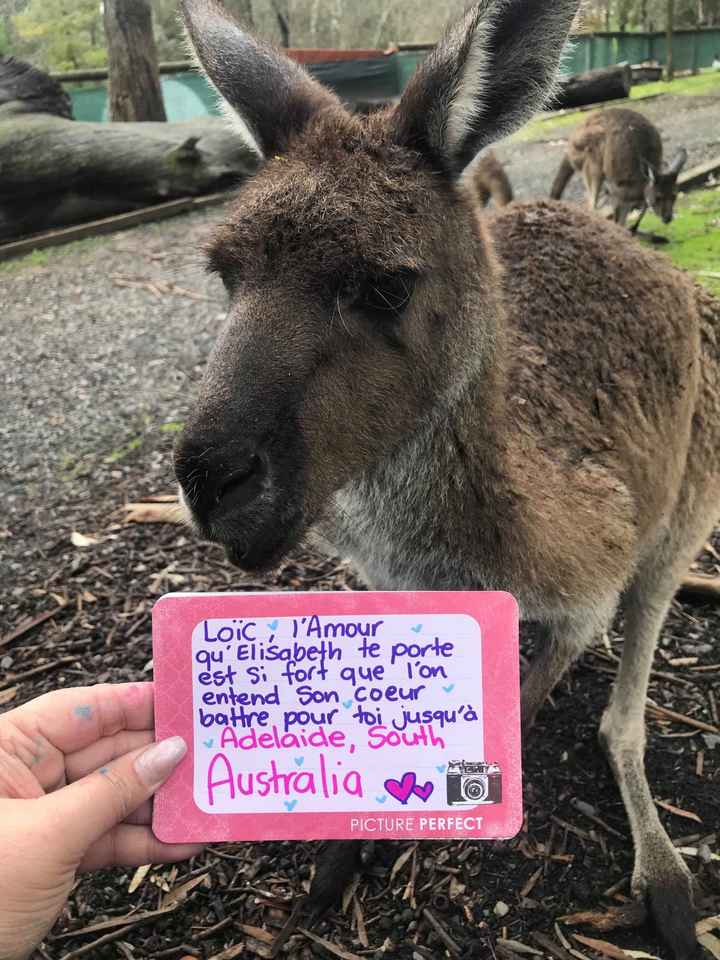 Loïc, l'Amour
qu'Elisabeth te porte
est si fort que l'on
entend son coeur
battre pour toi jusqu'à
Adelaide, South
Australia
PICTURE PERFECT